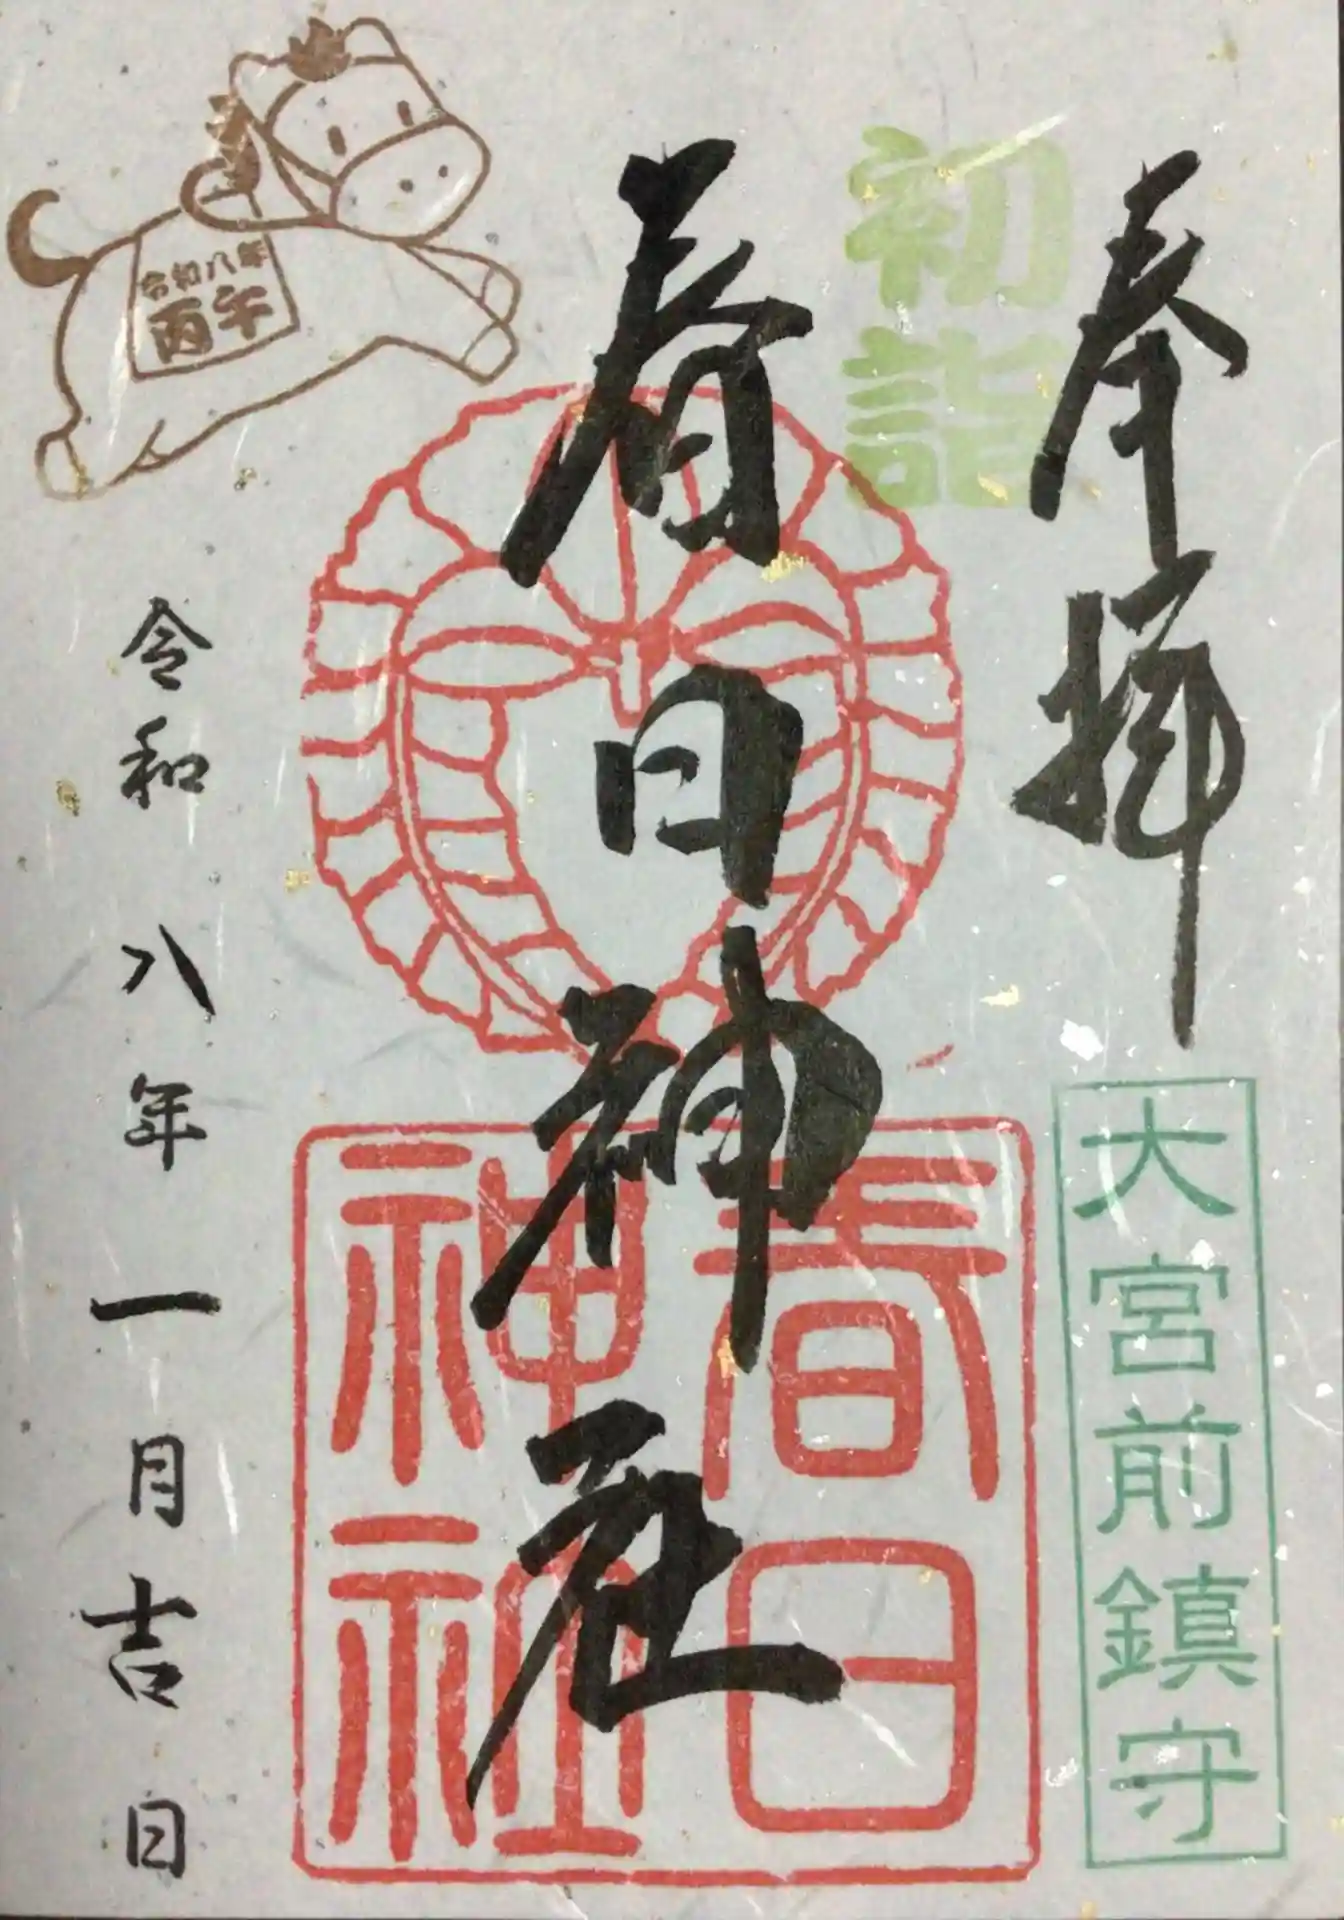 奉拝
初詣
大宮前鎮守
春日神社
春日
神社
令和八年
丙午
令和八年一月吉日